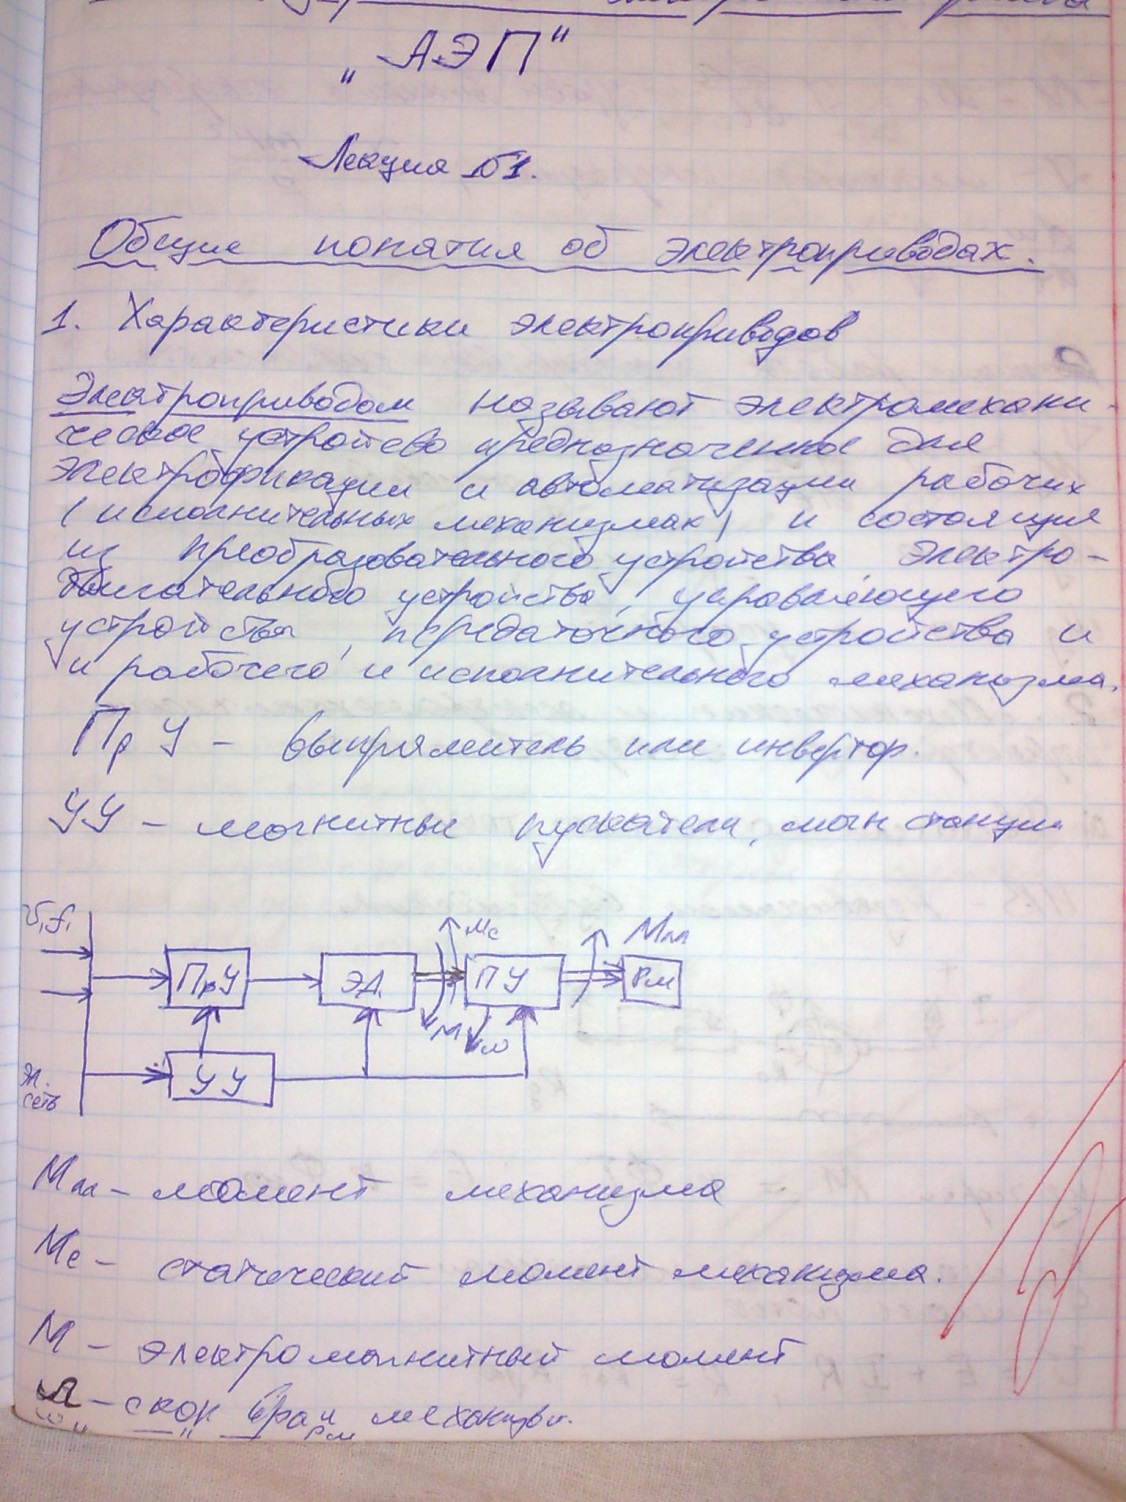 „АЭП“
Лекция №1.
Общие понятия об электроприводах.
1. Характеристики электроприводов
Электроприводом называют электромехани-
ческое устройство предназначенное для
электрофикации и автоматизации рабочих
(исполнительных механизмах) и состоящия
из преобразовательного устройства, электро-
двигательного устройства, управляющего
устройства, передаточного устройства и
и рабочего и исполнительного механизма.
ПрУ - выпрямитель или инвертор.
УУ - магнитные пускатели, маг станции
U₁f₁
Mc
Mм
ПрУ
ЭД.
ПУ
РМ
M
ω
УУ
эл.
сеть
Mм - момент механизма
Mc - статический момент механизма.
M - электромагнитный момент